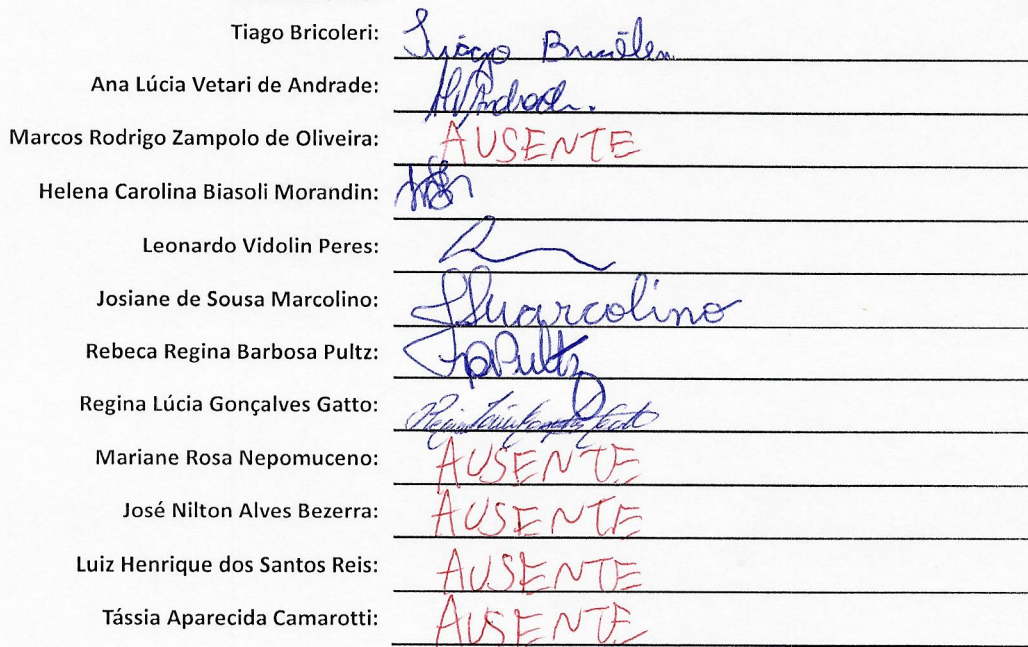 Tiago Bricoleri: Tiago
Ana Lúcia Vetari de Andrade: AVAndrade.
Marcos Rodrigo Zampolo de Oliveira: AUSENTE
Helena Carolina Biasoli Morandin:
Leonardo Vidolin Peres:
Josiane de Sousa Marcolino: JSMarcolino
Rebeca Regina Barbosa Pultz: Pultz
Regina Lúcia Gonçalves Gatto:
Mariane Rosa Nepomuceno: AUSENTE
José Nilton Alves Bezerra: AUSENTE
Luiz Henrique dos Santos Reis: AUSENTE
Tássia Aparecida Camarotti: AUSENTE